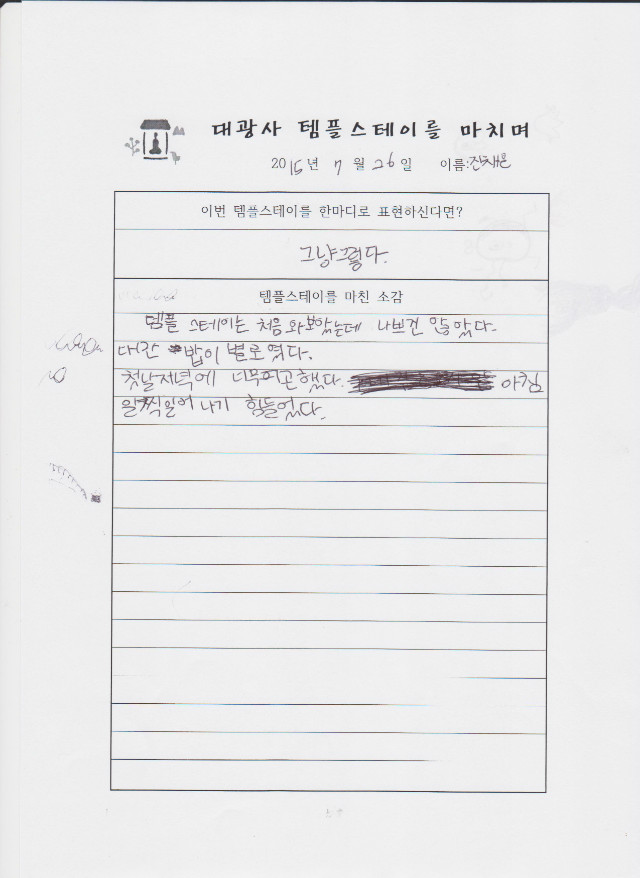 대광사 템플스테이를 마치며
2015년 7월 26일 이름:
이번 템플스테이를 한마디로 표현하신다면?
그냥그렇다.
템플스테이를 마친 소감
템플 스테이는 처음 와보았는데 나쁘진 않았다.
대신 밥이 별로였다.
첫날저녁에 너무피곤했다. 아침
일찍일어나기 힘들었다.